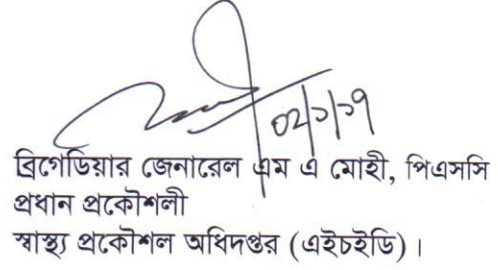 ০২/১/১৭
ব্রিগেডিয়ার জেনারেল এম এ মোহী, পিএসসি
প্রধান প্রকৌশলী
স্বাস্থ্য প্রকৌশল অধিদপ্তর (এইচইডি) ।